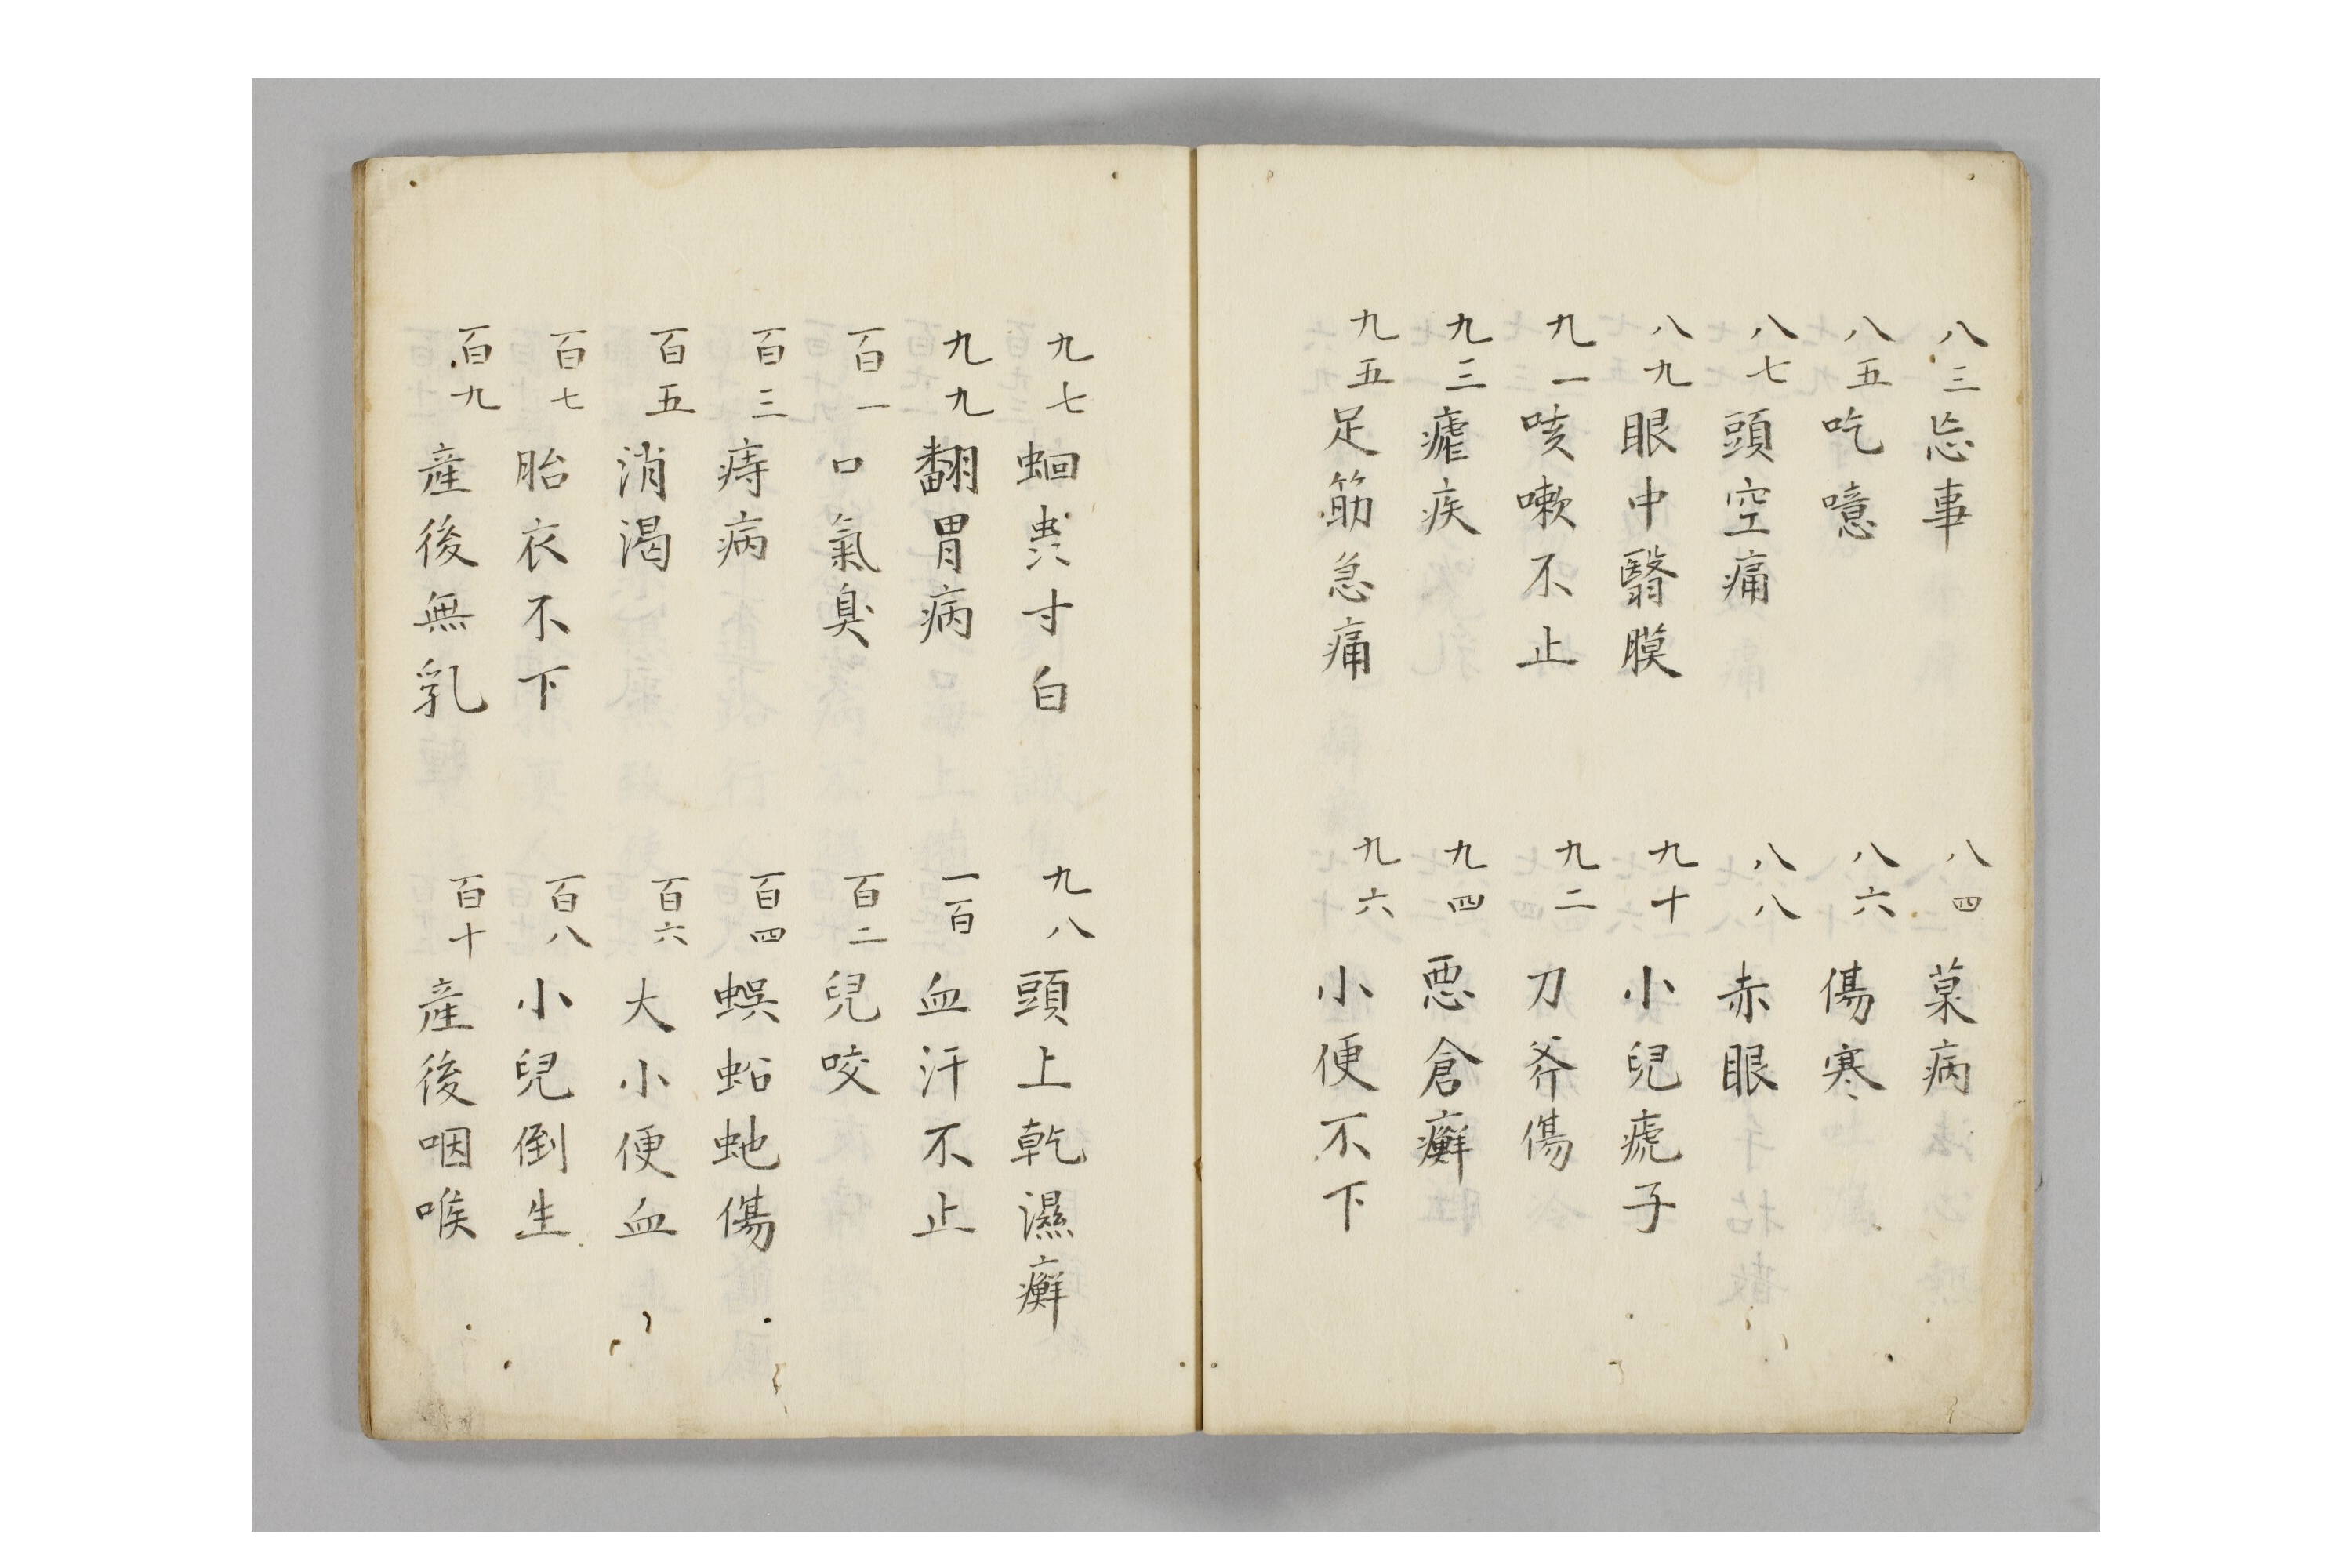 八三忘事
八四菓病
八五吃噫
八六傷寒
八七頭空痛
八八赤眼
八九眼中翳膜
九十小兒疣子
九一咳嗽不止
九二刀斧傷
九三瘧疾
九四悪倉癬
九五足筋急痛
九六小便不下
九七蛔𧏾寸白
九八頭上乾濕癬
九九翻胃病
一百血汗不止
百一口氣臭
百二兒咬
百三痔病
百四蜈蚣虵傷
百五消渴
百六大小便血
百七胎衣不下
百八小兒倒生
百九產後無乳
百十產後咽喉